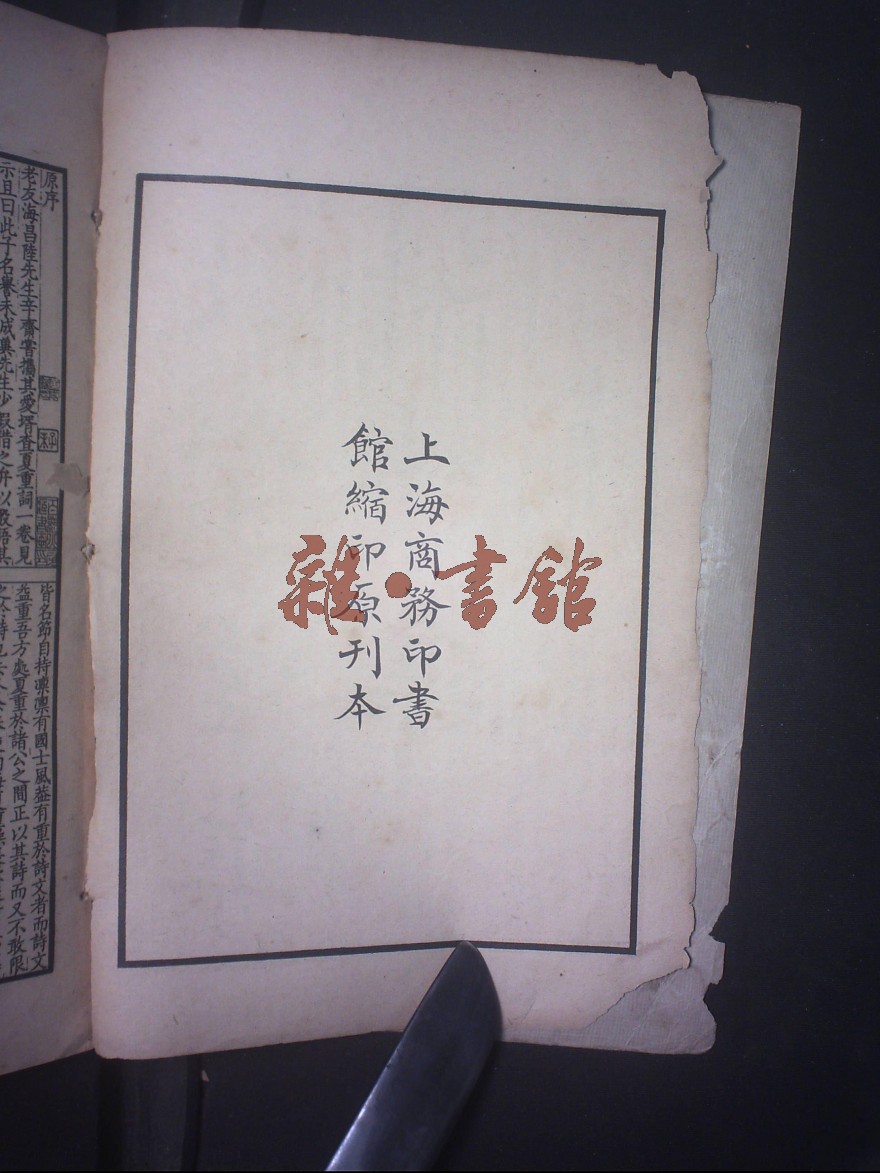 上海商務印書
館縮印原刊本
雜·書館
原序
老友海昌陸先生辛齋嘗攜其愛壻查夏重詞一卷見
示且曰此子名譽未成冀先生少假借之弁以數語其
皆名節自持凜凜有國士風蓋有重於詩文者而詩文
益重吾方處夏重於諸公之間正以其詩而又不敢限